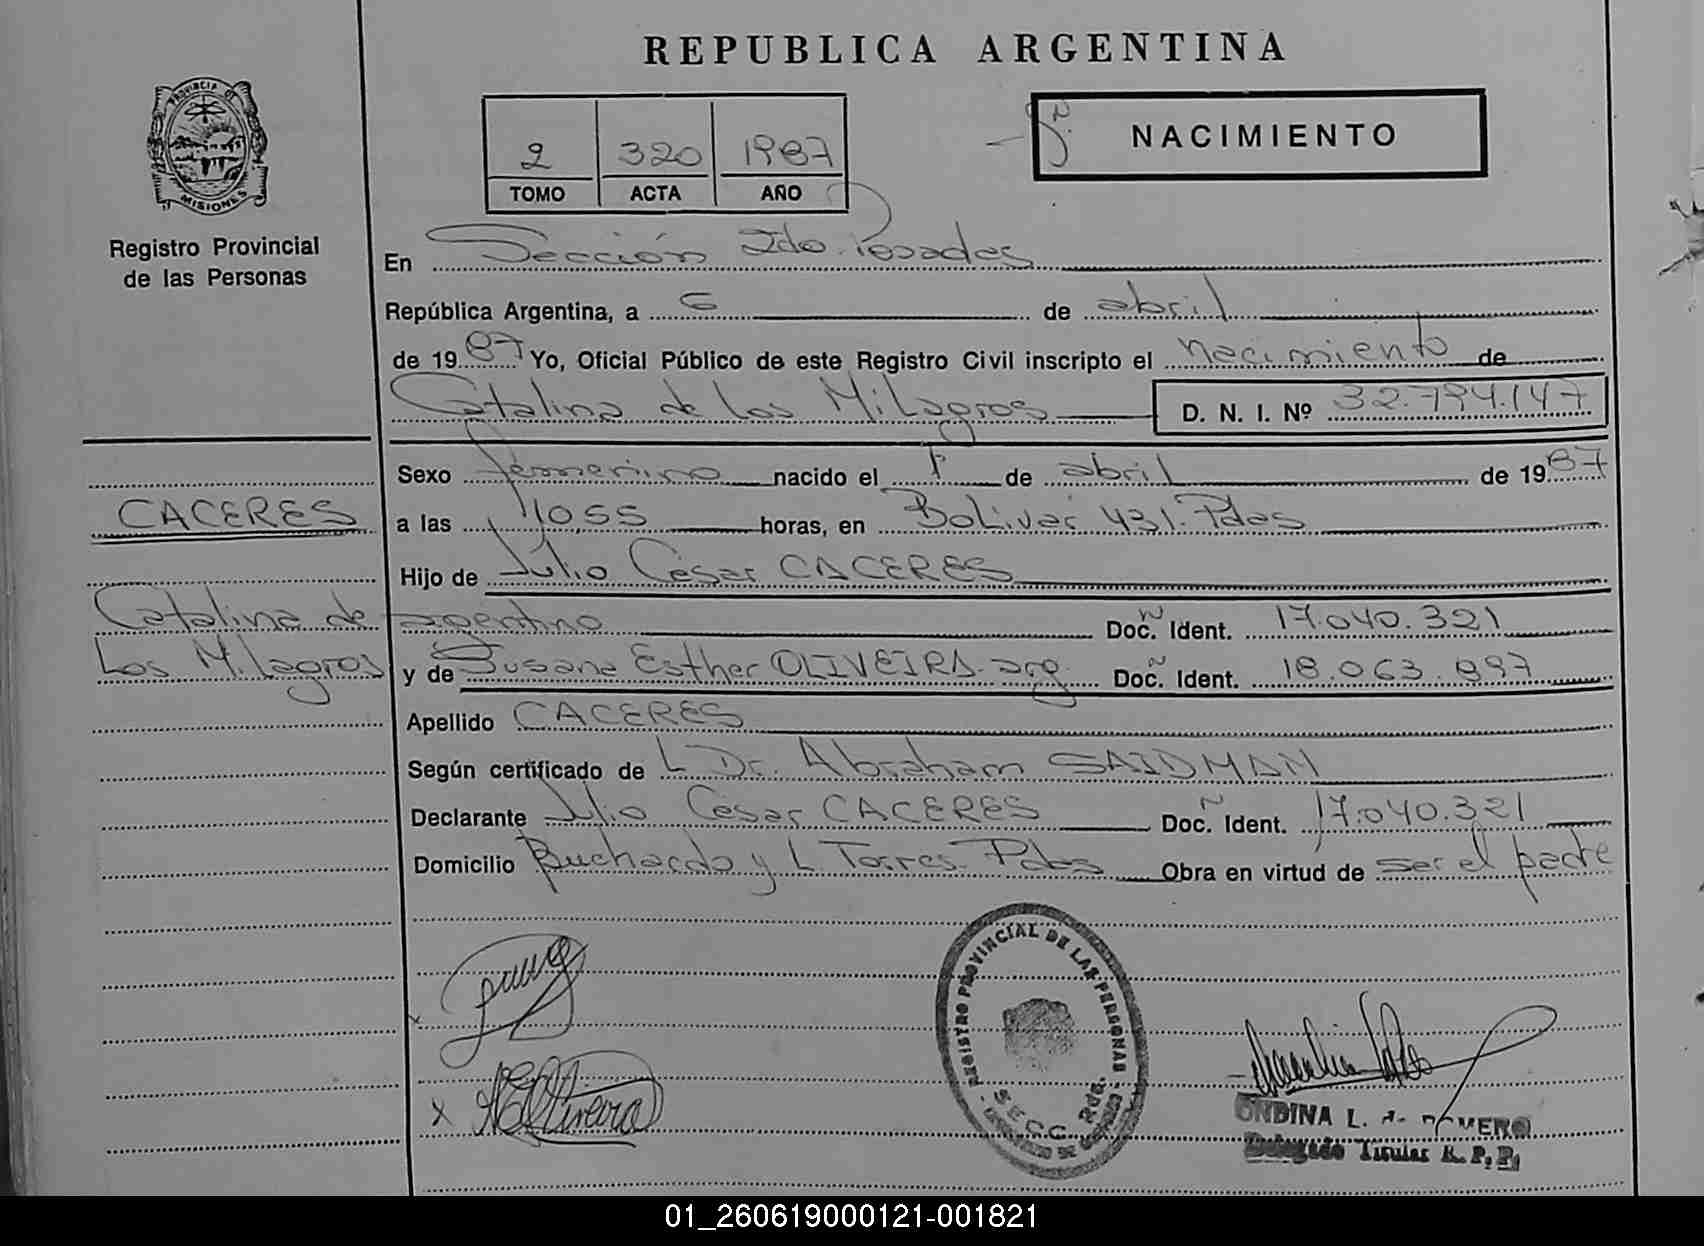 REPUBLICA ARGENTINA
PROVINCIA DE
MISIONES
Registro Provincial
de las Personas
2 320 1987
TOMO ACTA AÑO
NACIMIENTO
En Sección 2do. Posadas
República Argentina, a 6 de abril
de 1987 Yo, Oficial Público de este Registro Civil inscripto el nacimiento de
Catalina de los Milagros D. N. I. Nº 32.794.147
Sexo femenino nacido el 1º de abril de 1987
CACERES
a las 1055 horas, en Bolivar 431. Pdas
Hijo de Julio César CACERES
Catalina de
los Milagros
argentino Doc. Ident. 17.040.321
y de Susana Esther OLIVEIRA arg. Doc. Ident. 18.063.997
Apellido CACERES
Según certificado de L Dr. Abraham SAIDMAN
Declarante Julio César CACERES Doc. Ident. 17.040.321
Domicilio Buchardo y L. Torres. Pdas Obra en virtud de ser el padre
REGISTRO PROVINCIAL DE LAS PERSONAS
SECC. 2da.
ONDINA L. de
Delegado Titular R. P. P.
01_260619000121-001821